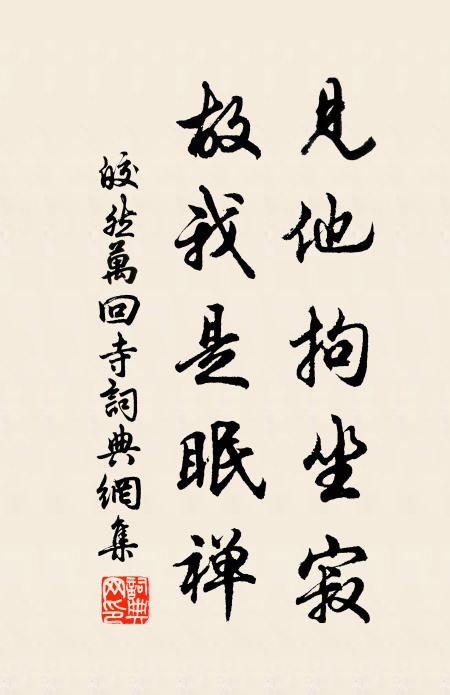 見他拘坐寂
故我是眠禅
皎然萬回寺詞典網集
詞典网印